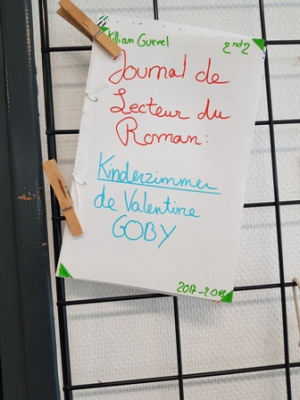 Killian Guevel 2nd2
Journal de
Lecteur du
Roman:
Kinderzimmer
de Valentine
GOBY
2017-2018